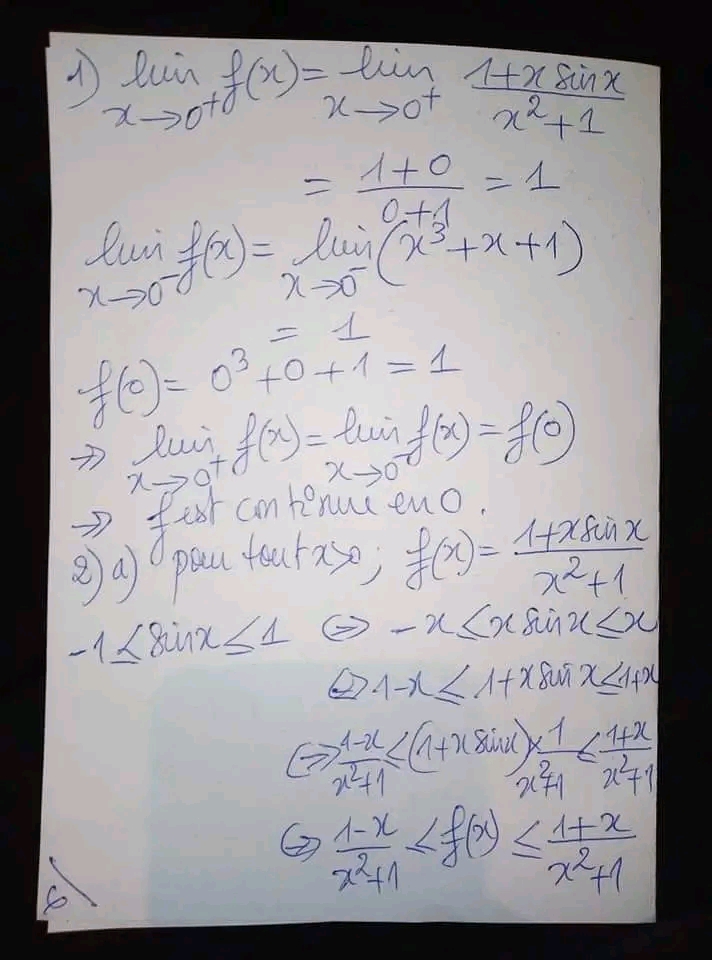 1) lim x→0⁺ f(x) = lim x→0⁺ (1+x sin x)/(x²+1)
= (1+0)/(0+1) = 1
lim x→0⁻ f(x) = lim x→0⁻ (x³+x+1)
= 1
f(0) = 0³+0+1 = 1
⇒ lim x→0⁺ f(x) = lim x→0⁻ f(x) = f(0)
⇒ f est continue en 0.
2) a) pour tout x>0 ; f(x) = (1+x sin x)/(x²+1)
-1 ≤ sin x ≤ 1 ⇔ -x ≤ x sin x ≤ x
⇔ 1-x ≤ 1+x sin x ≤ 1+x
⇔ (1-x)/(x²+1) ≤ (1+x sin x) × 1/(x²+1) ≤ (1+x)/(x²+1)
⇔ (1-x)/(x²+1) ≤ f(x) ≤ (1+x)/(x²+1)